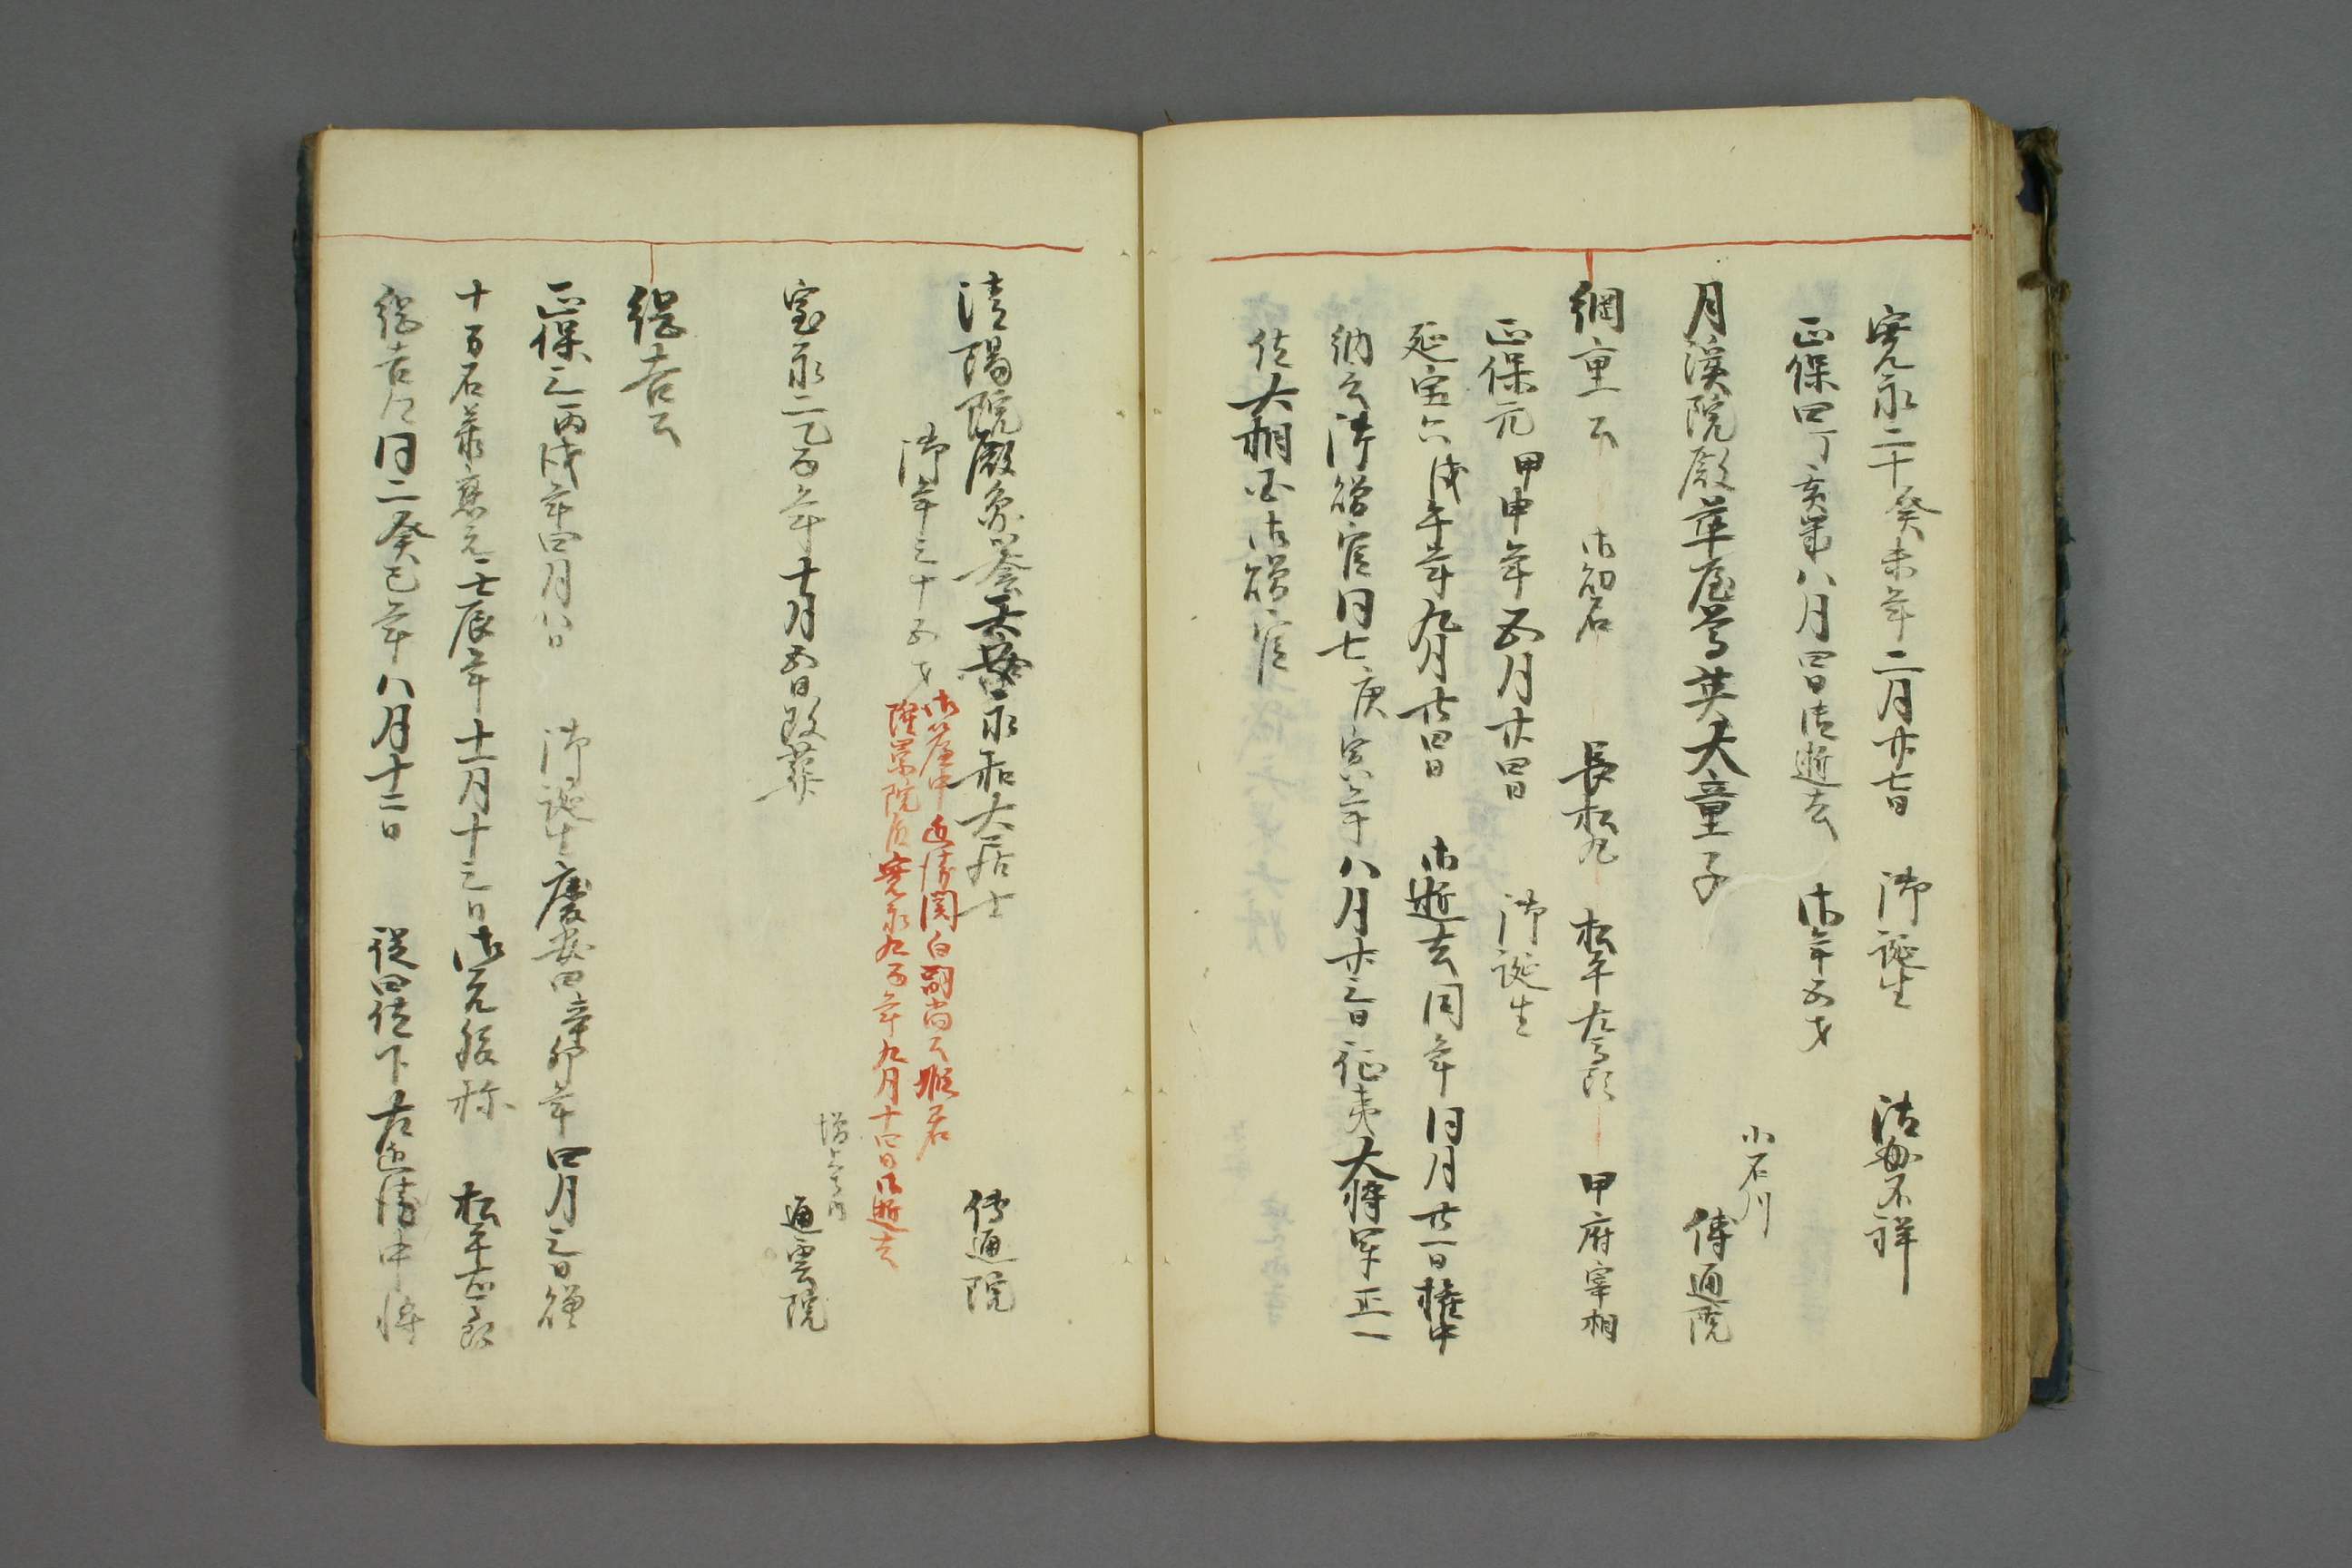 寛永二十癸未年二月廿七日 御誕生 御母不祥
正保四丁亥年八月四日御逝去 御年五才
小石川
月渓院殿華屋芳英大童子 傳通院
綱重公 御初名 長松丸 松平左馬頭 甲府宰相
正保元甲申年五月廿四日 御誕生
延宝六戊午年九月廿四日 御逝去同年同月廿一日権中
納言御贈官同七庚寅年八月廿三日征夷大将軍正一
位大相国御贈官
清陽院殿 天安永和大居士 傳通院
御年三十五才
御簾中近衛関白嗣尚公姫君
隆崇院后寛永九子年九月十四日御逝去
増上寺内
宝永二乙酉年十月五日改葬 通雲院
綱吉公
正保三丙戌年四月八日 御誕生慶安四辛卯年四月三日領
十万石承應元壬辰年十一月十三日御元服称 松平右馬頭
綱吉公同二癸巳年八月十二日 従四位下右近衛中将